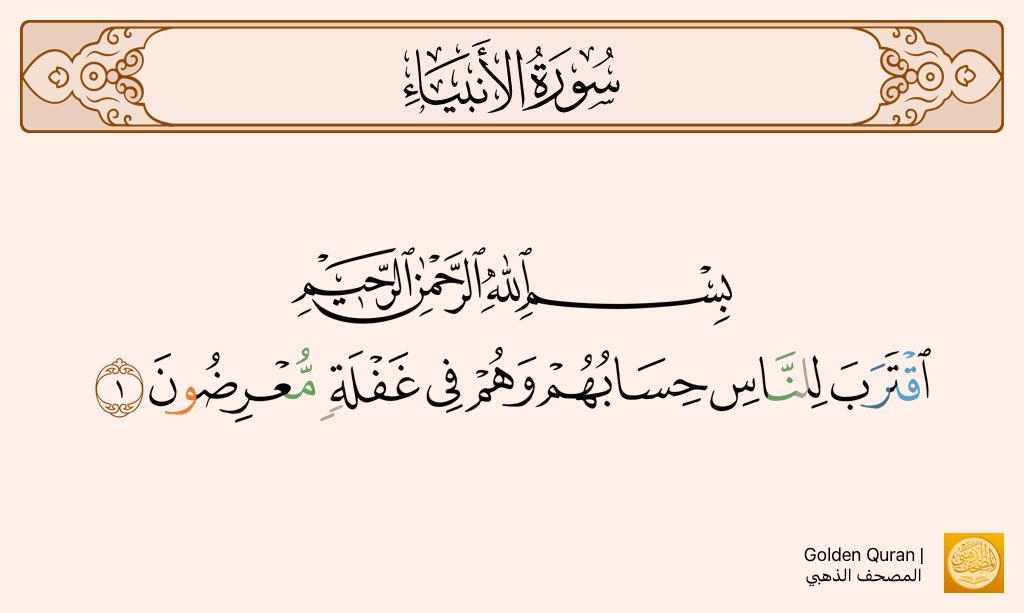 سُورَةُ الأَنبِيَاءِ
بِسْمِ ٱللَّهِ ٱلرَّحْمَٰنِ ٱلرَّحِيمِ
ٱقْتَرَبَ لِلنَّاسِ حِسَابُهُمْ وَهُمْ فِى غَفْلَةٍ مُّعْرِضُونَ ١
Golden Quran |
المصحف الذهبي
المصحف الذهبي